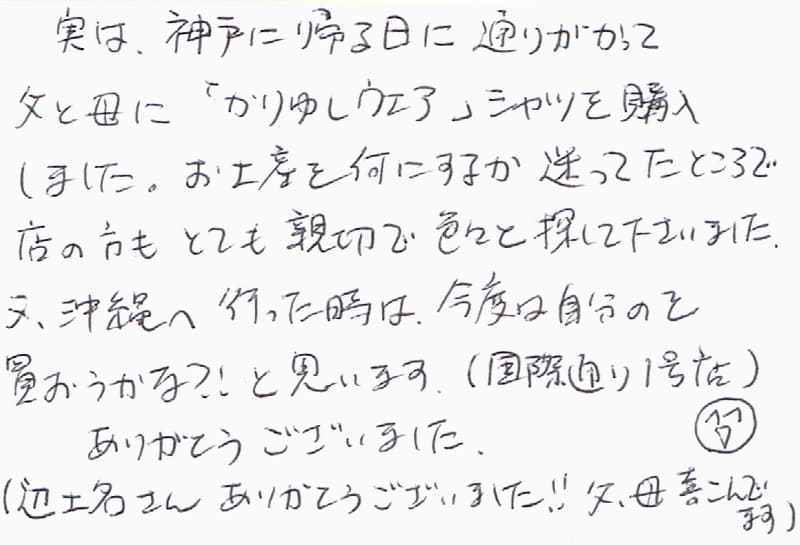 実は、神戸に帰る日に通りがかって
父と母に「かりゆしウエア」シャツを購入
しました。お土産を何にするか迷ってたところで
店の方もとても親切で色々と探して下さいました。
又、沖縄へ行った時は、今度は自分のを
買おうかな?!と思います。(国際通り1号店)
ありがとうございました。
(辺土名さんありがとうございました!!父、母喜こんで
ます)